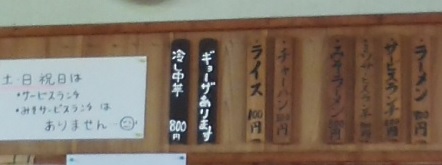 土・日・祝日は
・サービスランチ
・みそサービスランチは
ありません
冷し中華
800円
ギョーザあります
ライス
100円
チャーハン
みそラーメン
サービスランチ
ラーメン